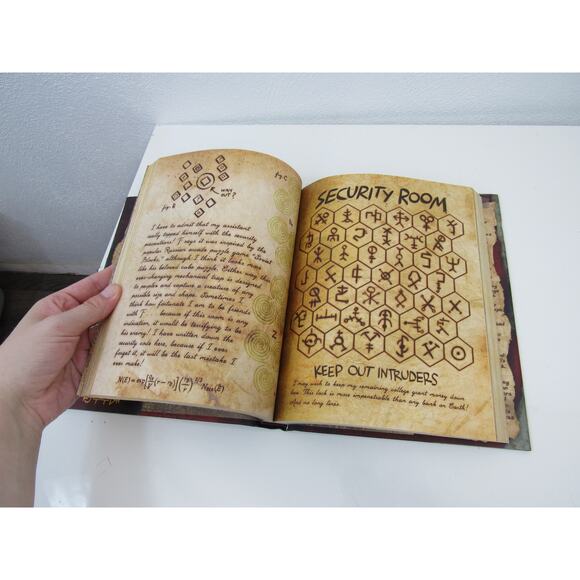 fig. C
WAY OUT?
fig. B
I have to admit that my assistant
really topped himself with the security
precautions! F says it was inspired by the
popular Russian arcade puzzle game "Soviet
Blocks," although I think it looks more
like his beloved cube puzzle. Either way, this
ever-changing mechanical trap is designed
to puzzle and capture a creature of any
possible size and shape. Sometimes I
think how fortunate I am to be friends
with F because if this room is any
indication, it would be terrifying to be
his enemy! I have written down the
security code here, because if I ever
forget it, it will be the last mistake I
ever make!
SECURITY ROOM
KEEP OUT INTRUDERS
I may wish to keep my remaining college grant money down
here. This lock is more impenetrable than any bank on Earth!
And no long lines.